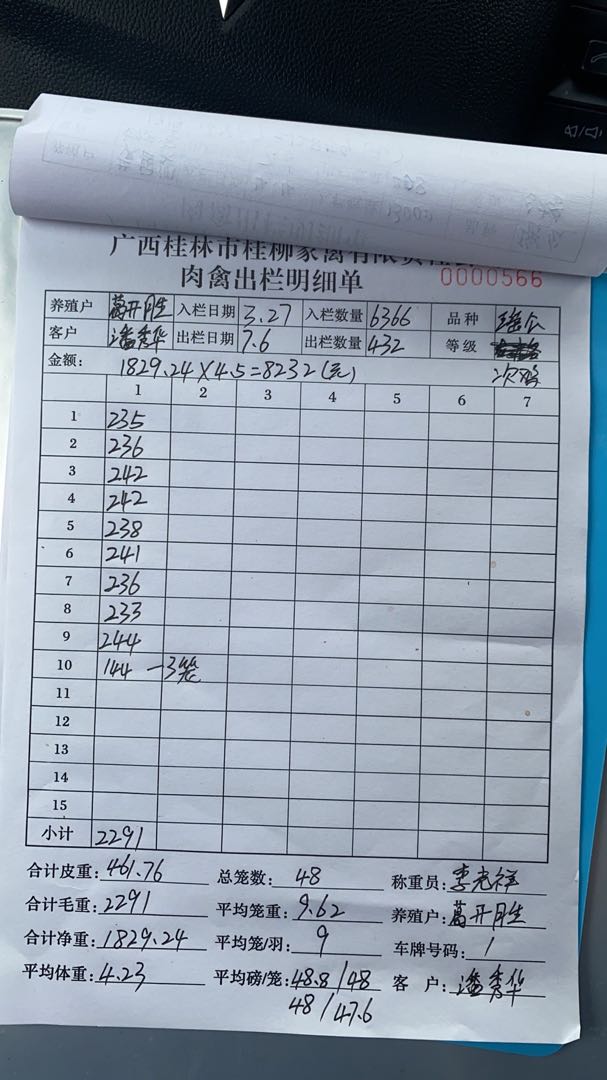 广西桂林市桂柳家禽有限责任公
肉禽出栏明细单
0000566
养殖户 葛开胜 入栏日期 3.27 入栏数量 6366 品种 瑶
客户 潘秀华 出栏日期 7.6 出栏数量 432 等级
金额: 1829.24×4.5=8232(元) 次鸡
1 2 3 4 5 6 7
1 235
2 236
3 242
4 242
5 238
6 241
7 236
8 233
9 244
10 144 一3笼
11
12
13
14
15
小计 2291
合计皮重: 461.76 总笼数: 48 称重员: 李光祥
合计毛重: 2291 平均笼重: 9.62 养殖户: 葛开胜
合计净重: 1829.24 平均笼/羽: 9 车牌号码: 1
平均体重: 4.23 平均磅/笼: 48.8/48 客 户: 潘秀华
48/47.6